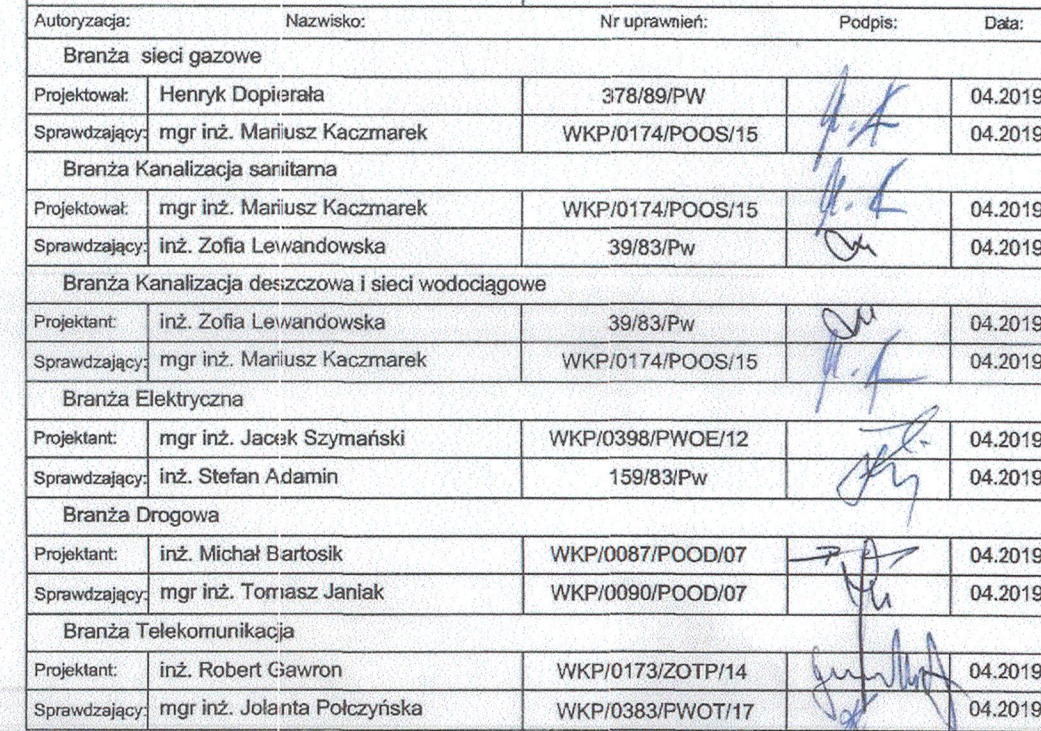 Autoryzacja: Nazwisko: Nr uprawnień: Podpis: Data:
Branża sieci gazowe
Projektował: Henryk Dopierała 378/89/PW 04.2019
Sprawdzający: mgr inż. Mariusz Kaczmarek WKP/0174/POOS/15 04.2019
Branża Kanalizacja sanitarna
Projektował: mgr inż. Mariusz Kaczmarek WKP/0174/POOS/15 04.2019
Sprawdzający: inż. Zofia Lewandowska 39/83/Pw 04.2019
Branża Kanalizacja deszczowa i sieci wodociągowe
Projektant: inż. Zofia Lewandowska 39/83/Pw 04.2019
Sprawdzający: mgr inż. Mariusz Kaczmarek WKP/0174/POOS/15 04.2019
Branża Elektryczna
Projektant: mgr inż. Jacek Szymański WKP/0398/PWOE/12 04.2019
Sprawdzający: inż. Stefan Adamin 159/83/Pw 04.2019
Branża Drogowa
Projektant: inż. Michał Bartosik WKP/0087/POOD/07 04.2019
Sprawdzający: mgr inż. Tomasz Janiak WKP/0090/POOD/07 04.2019
Branża Telekomunikacja
Projektant: inż. Robert Gawron WKP/0173/ZOTP/14 04.2019
Sprawdzający: mgr inż. Jolanta Połczyńska WKP/0383/PWOT/17 04.2019